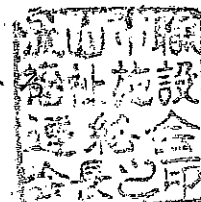 山市
福祉施設
連絡会
会長之印